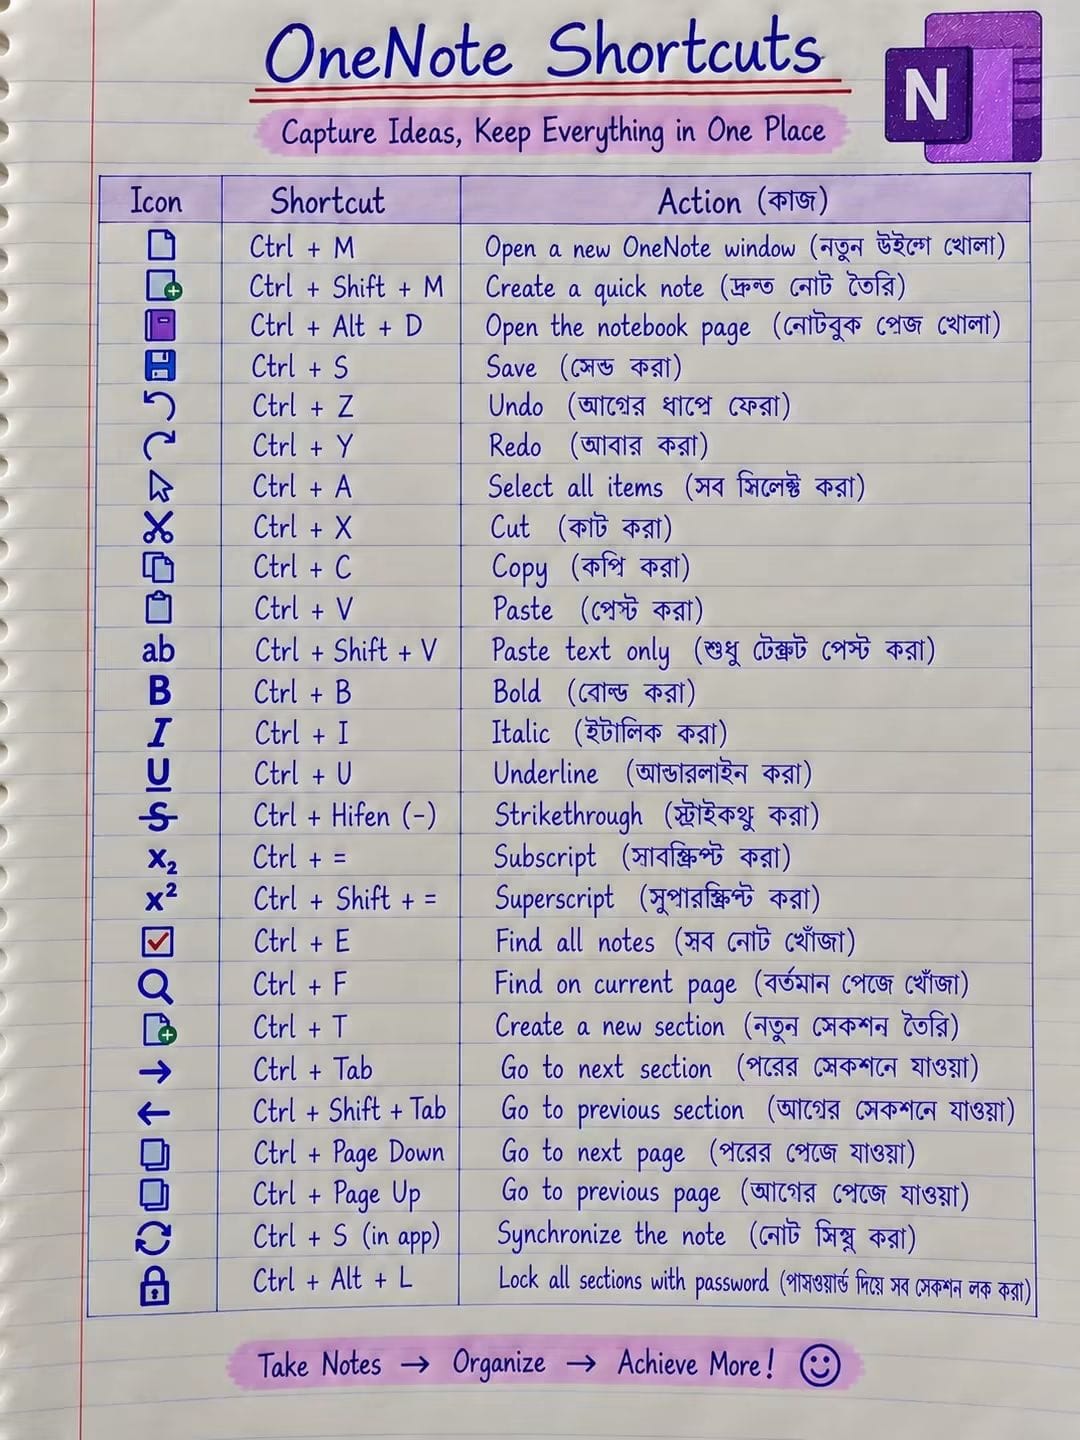 OneNote Shortcuts
N
Capture Ideas, Keep Everything in One Place
Icon Shortcut Action (কাজ)
Ctrl + M Open a new OneNote window (নতুন উইন্ডো খোলা)
Ctrl + Shift + M Create a quick note (দ্রুত নোট তৈরি)
Ctrl + Alt + D Open the notebook page (নোটবুক পেজ খোলা)
Ctrl + S Save (সেভ করা)
Ctrl + Z Undo (আগের ধাপে ফেরা)
Ctrl + Y Redo (আবার করা)
Ctrl + A Select all items (সব সিলেক্ট করা)
Ctrl + X Cut (কাট করা)
Ctrl + C Copy (কপি করা)
Ctrl + V Paste (পেস্ট করা)
ab Ctrl + Shift + V Paste text only (শুধু টেক্সট পেস্ট করা)
B Ctrl + B Bold (বোল্ড করা)
I Ctrl + I Italic (ইটালিক করা)
U Ctrl + U Underline (আন্ডারলাইন করা)
S Ctrl + Hifen (-) Strikethrough (স্ট্রাইকথ্রু করা)
x₂ Ctrl + = Subscript (সাবস্ক্রিপ্ট করা)
x² Ctrl + Shift + = Superscript (সুপারস্ক্রিপ্ট করা)
Ctrl + E Find all notes (সব নোট খোঁজা)
Ctrl + F Find on current page (বর্তমান পেজে খোঁজা)
Ctrl + T Create a new section (নতুন সেকশন তৈরি)
→ Ctrl + Tab Go to next section (পরের সেকশনে যাওয়া)
← Ctrl + Shift + Tab Go to previous section (আগের সেকশনে যাওয়া)
Ctrl + Page Down Go to next page (পরের পেজে যাওয়া)
Ctrl + Page Up Go to previous page (আগের পেজে যাওয়া)
Ctrl + S (in app) Synchronize the note (নোট সিঙ্ক করা)
Ctrl + Alt + L Lock all sections with password (পাসওয়ার্ড দিয়ে সব সেকশন লক করা)
Take Notes → Organize → Achieve More!